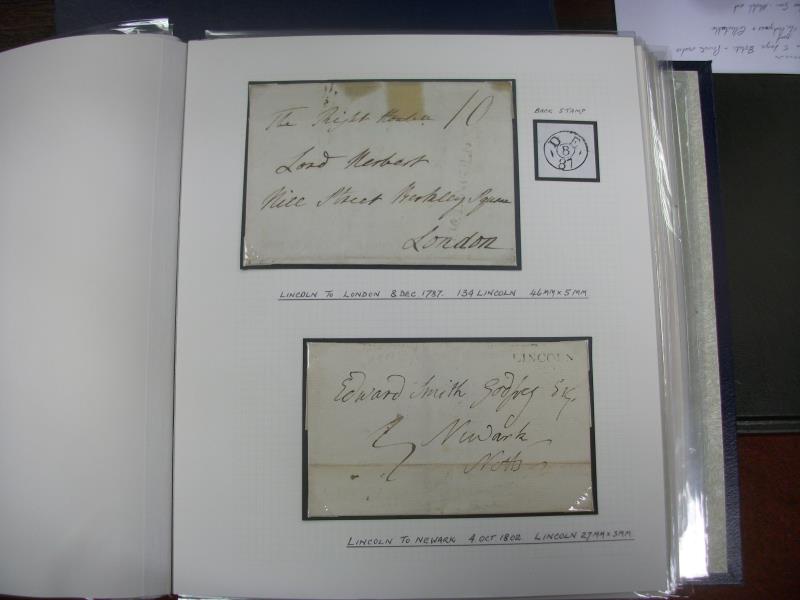 The Right Honble 10
Lord Herbert
Hill Street Berkley Square
London
BACK STAMP
D E
8
87
LINCOLN TO LONDON 8 DEC 1787. 134 LINCOLN 46MM X 5MM
LINCOLN
Edward Smith Godfrey Esq,
Newark
Notts
LINCOLN TO NEWARK 4 OCT 1802 LINCOLN 27MM X 3MM